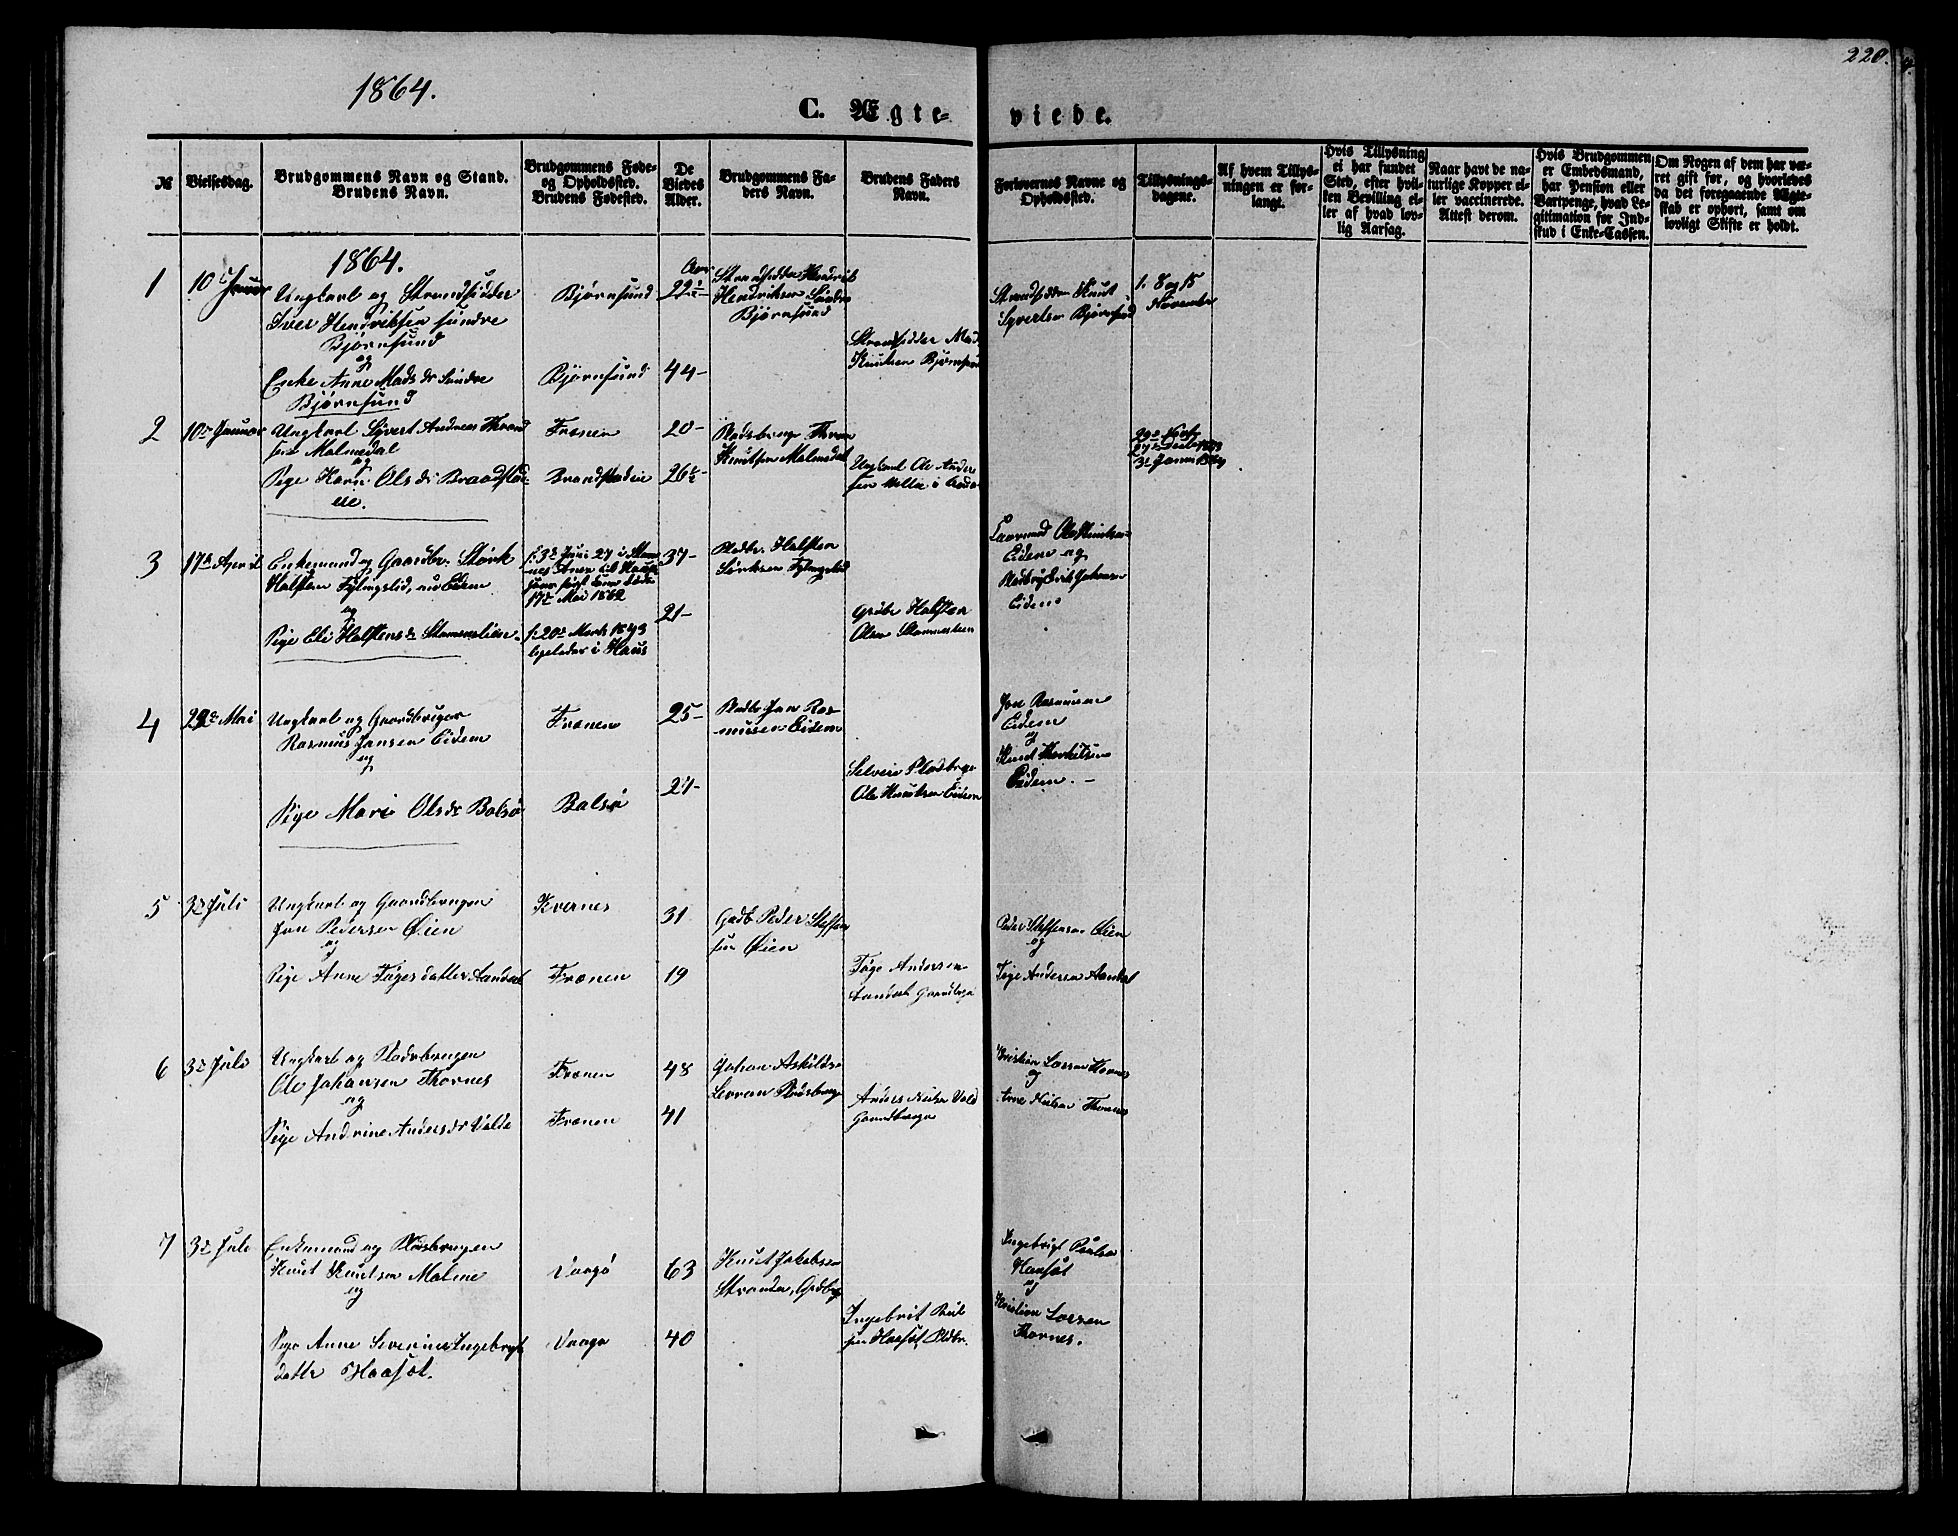 220.
1864.
C. Ægteviede.
№
Vielsesdag.
Brudgommens Navn og Stand.
Brudens Navn.
Brudgommens Føde-
og Opholdssted.
Brudens Fødested.
De
Viedes
Alder.
Brudgommens Fa-
ders Navn.
Brudens Faders
Navn.
Forlovernes Navne og
Opholdssted.
Tillysnings-
dagene.
Af hvem Tillys-
ningen er for-
langt.
Hvis Tillysning
ei har fundet
Sted, efter hvil-
ken Bevilling el-
ler af hvad lov-
lig Aarsag.
Naar havt de na-
turlige Kopper el-
ler vaccinerede.
Attest derom.
Hvis Brudgommen
er Embedsmand,
har Pension eller
Vartpenge, hvad Le-
gitimation for Ind-
skud i Enke-Cassen.
Om Nogen af dem har væ-
ret gift før, og hvorledes
da det foregaaende Ægte-
skab er ophørt, samt om
lovligt Skifte er holdt.
1864.
1
10de Januar
Ungkarl og Strandsidder
Iver Hendriksen Søndre
Bjørnsund
og
Enke Anne Madsdr Søndre
Bjørnsund
Bjørnsund
Bjørnsund
Aar
22½
44-
Strandsidder Hendrik
Hendriksen Søndre
Bjørnsund
Strandsidder Mads
Knutsen Bjørnsund
Strandsidder Knut
Syvertsen Bjørnsund
1. 8 og 15
November
2
10de Januar
Ungkarl Sivert Andreas Thrond
sen Malmedal
og
Pige Karn Olsdr Brandstad-
Frænen
20-
26½-
Pladsbruger
Knutsen Malmedal
Ungkarl Ole Anders
sen
3
17de April
Enkemand og Gaardbr. Størk
Halsten Fylingslid, nu Eidem
og
Pige Eli Halstensdr Stamneslien
f. 3de Juni 27 i Stam
nes Anex til Haus
17de Mai 1862
f. 20de Marts 1843
ligeledes i Haus
37-
21-
Pladsbr. Halsten
Størksen Fylingslid
Grdbr Halsten
Olsen Stamneslien
Ole Knutsen
Eidem og
Pladsbr Erik Johansen
Eidem
4
22de Mai
Ungkarl og Gaardbruger
Rasmus Jansen Eidem
og
Pige Mari Olsdr Bolsø
Frænen
Bolsø
25-
21-
Pladsbr Jan Ras-
mussen Eidem
Selveier Pladsbruger
Ole Knutsen Eidem
Jon Rasmussen
Eidem
og
Knut
Eidem. -
5
3de Juli
Ungkarl og Gaardbrugen
Jon Pedersen Øien
og
Pige Anne Tøgesdatter Aandal
Kvernes
Frænen
31
19
Gadb. Peder Steffen
sen Øien
Tøge Andersen
Gaardbruger
Peder Steffensen Øien
og
Tøge Andersen
6
3de Juli
Ungkarl og Pladsbrugen
Ole Johansen Thornes
og
Pige Andrine Andersdr Valde
Frænen
Frænen
48
41
Johan Askildsen
Pladsbruger
Anders Nielsen Vald
Gaardbruger
Kristian Larsen Thornes
og
Arne Nielsen Thornes
7
3de Juli
Enkemand og Pladsbrugen
Knut Knutsen Malme
og
Pige Anne Severine Ingebrigt
datter Haasøt.
Vaagø
Vaagø
63
40
Knut Jakobsen
Strande, Grdbrg
Ingebrit Poul
sen Haasøt, Pldbr.
Ingebrigt Poulsen
Haasøt
og
Kristian Larsen
Thornes.